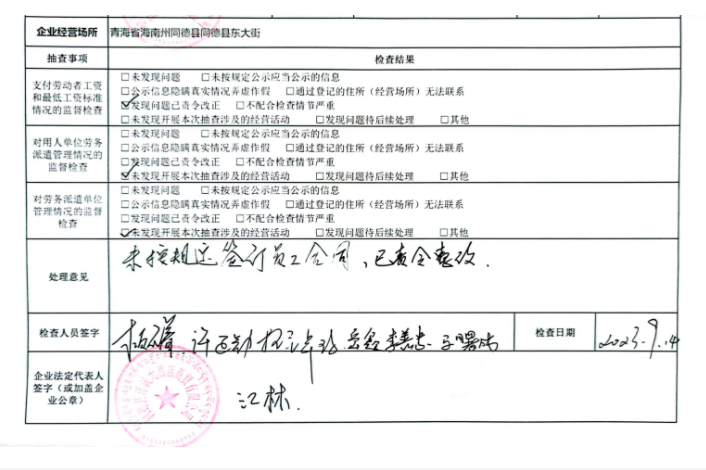 企业经营场所 青海省海南州同德县同德县东大街
抽查事项 检查结果
支付劳动者工资和最低工资标准情况的监督检查
□未发现问题 □未按规定公示应当公示的信息
□公示信息隐瞒真实情况弄虚作假 □通过登记的住所（经营场所）无法联系
☑发现问题已责令改正 □不配合检查情节严重
□未发现开展本次抽查涉及的经营活动 □发现问题待后续处理 □其他
对用人单位劳务派遣管理情况的监督检查
□未发现问题 □未按规定公示应当公示的信息
□公示信息隐瞒真实情况弄虚作假 □通过登记的住所（经营场所）无法联系
□发现问题已责令改正 □不配合检查情节严重
☑未发现开展本次抽查涉及的经营活动 □发现问题待后续处理 □其他
对劳务派遣单位管理情况的监督检查
□未发现问题 □未按规定公示应当公示的信息
□公示信息隐瞒真实情况弄虚作假 □通过登记的住所（经营场所）无法联系
□发现问题已责令改正 □不配合检查情节严重
☑未发现开展本次抽查涉及的经营活动 □发现问题待后续处理 □其他
处理意见 未按规定签订员工合同，已责令整改.
检查人员签字 检查日期 2023.9.14
企业法定代表人签字（或加盖企业公章） 江林.